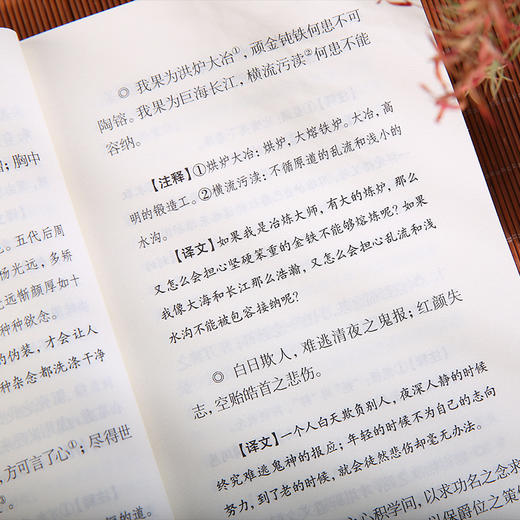 ；胸中
。五代后周
杨光远，多矫
光远惭颜厚如十
种种欲念。
的伪装，才会让人
种杂念都洗涤干净
，方可言了心①；尽得世
③。
的道。
◎ 我果为洪炉大冶①，顽金钝铁何患不可
陶镕。我果为巨海长江，横流污渎②何患不能
容纳。
【注释】①烘炉大冶：烘炉，大熔铁炉。大冶，高
明的锻造工。②横流污渎：不循原道的乱流和浅小的
水沟。
【译文】如果我是冶炼大师，有大的炼炉，那么
又怎么会担心坚硬笨重的金铁不能够熔炼呢？如果
我像大海和长江那么浩瀚，又怎么会担心乱流和浅
水沟不能被包容接纳呢？
◎ 白日欺人，难逃清夜之鬼报；红颜失
志，空贻皓首之悲伤。
【译文】一个人白天欺负别人，夜深人静的时候
终究难逃鬼神的报应；年轻的时候不为自己的志向
努力，到了老的时候，就会徒然悲伤却毫无办法。
心积学问，以求功名之念求
保爵位之策